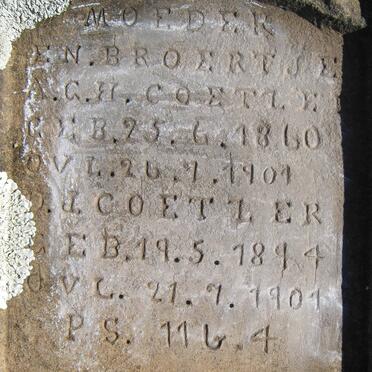 MOEDER
EN.BROERTJE
A.G.H.COETLE
GEB.25.6.1860
OVL.26.7.1901
J.COETLER
GEB.19.5.1894
OVL.21.7.1901
PS.116.4